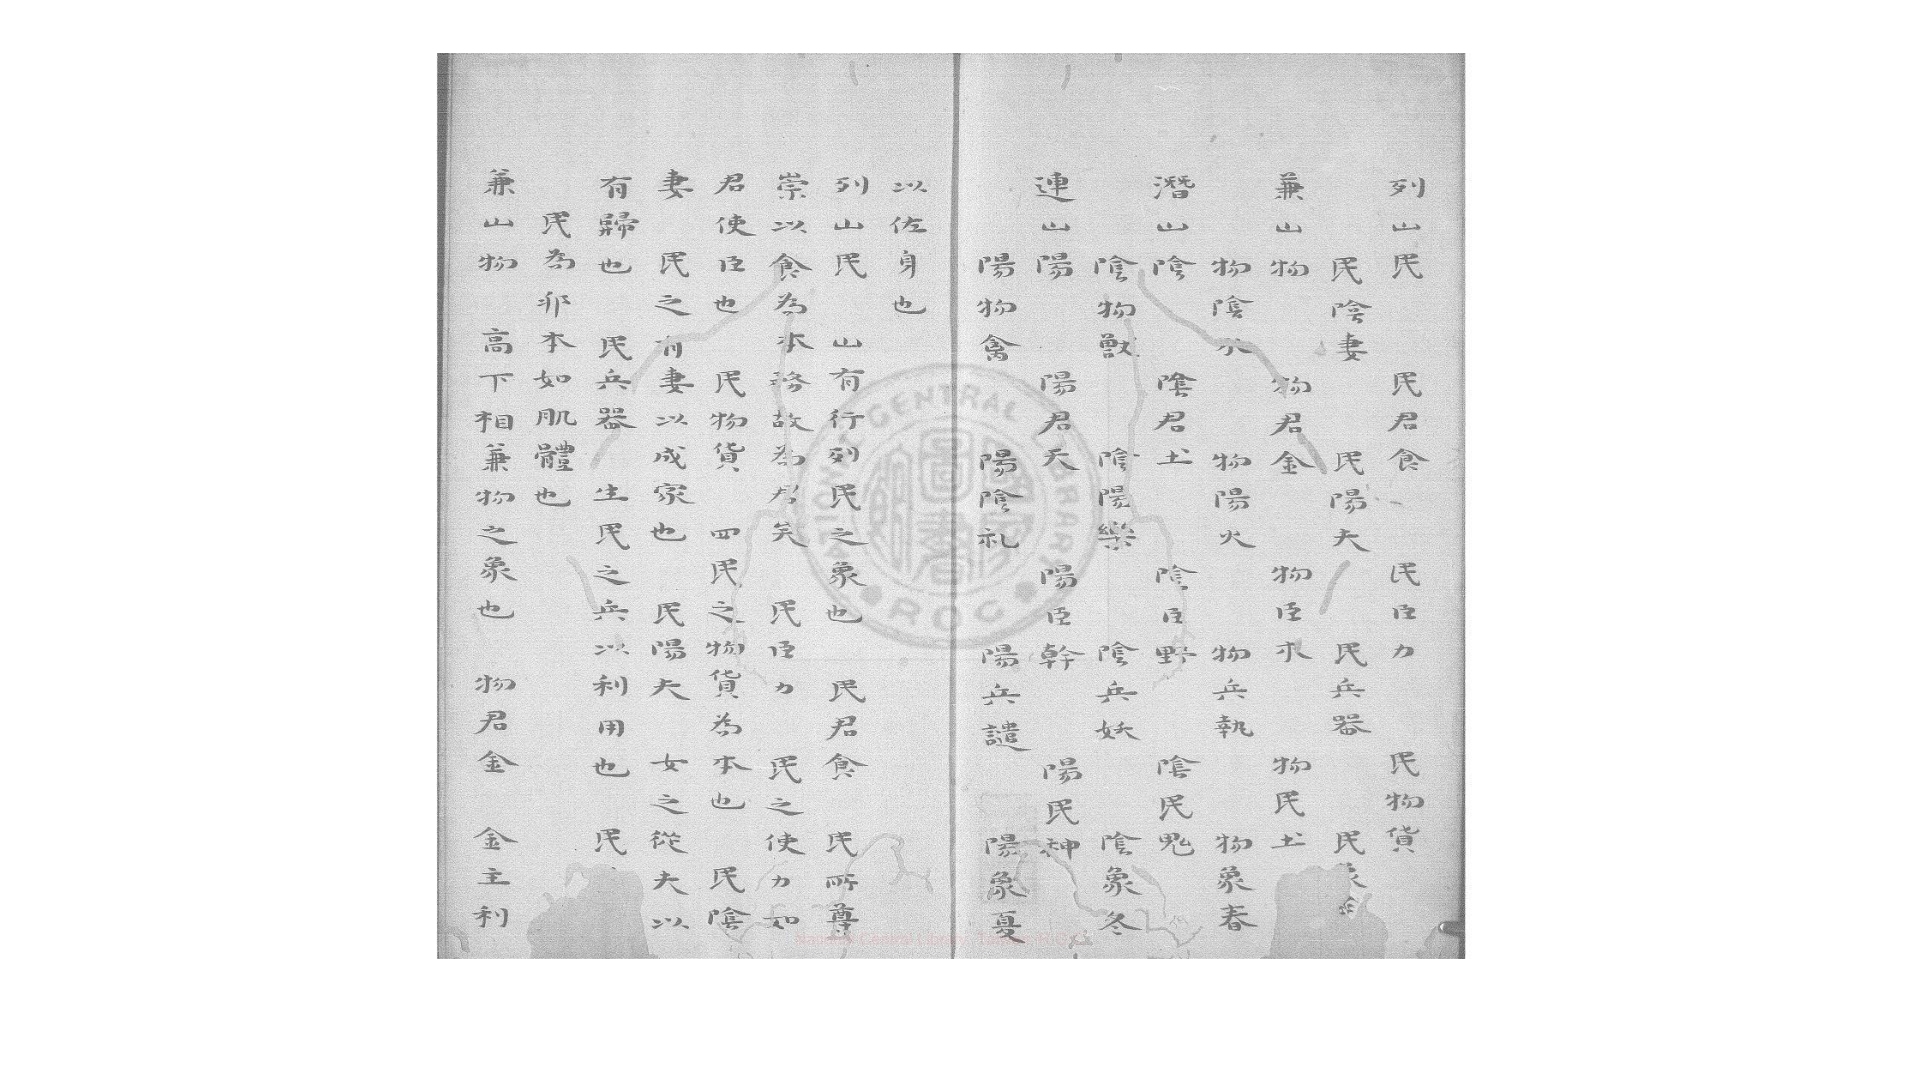 列山民　民君食　民臣力　民物貨
民陰妻　民陽夫　民兵器　民象
兼山物　物君金　物臣木　物民土
物陰水　物陽火　物兵執　物象春
潛山陰　陰君土　陰臣野　陰民鬼
陰物獸　陰陽樂　陰兵妖　陰象冬
連山陽　陽君天　陽臣幹　陽民神
陽物禽　陽陰礼　陽兵譴　陽象夏
以佐身也
列山民　山有行列民之象也　民君食　民所尊
崇以食為本務故為君矣　民臣力　民之使力如
君使臣也　民物貨　四民之物貨為本也　民陰
妻　民之有妻以成家也　民陽夫　女之從夫以
有歸也　民兵器　生民之兵以利用也　民
民為邦本如肌體也
兼山物　高下相兼物之象也　物君金　金主利
NATIONAL CENTRAL LIBRARY
ROC
國家圖書館
National Central Library